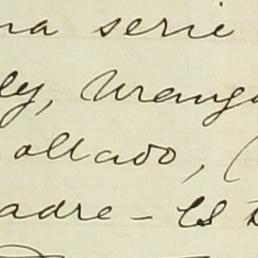 na serie
ly, Wrang
ollado, (
adre - Es t